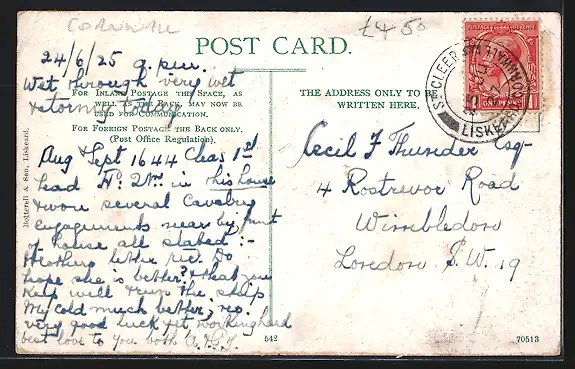 CORNWALL
£4 50
POST CARD.
24/6/25 9 p.m.
Wet through very wet
& stormy today
FOR INLAND POSTAGE THIS SPACE, AS
WELL AS THE BACK, MAY NOW BE
USED FOR COMMUNICATION.
FOR FOREIGN POSTAGE THE BACK ONLY,
(Post Office Regulation).
Aug & Sept 1644 Chas 1st
head H. Qrs. in this house
& won several Cavalry
engagements near by front
of house all stated :-
Heathers letter rec. Do
hope she is better? & that you
keep well & run the ship
My cold much better,
very good luck yet, working hard
best love to you both A.H.T.
Botterell & Son, Liskeard.
THE ADDRESS ONLY TO BE
WRITTEN HERE.
ST CLEER
LISKEARD
CORNWALL
ONE PENNY
Cecil F Thunder Esq-
4 Rostrevor Road
Wimbledon
London S.W. 19
542
70513